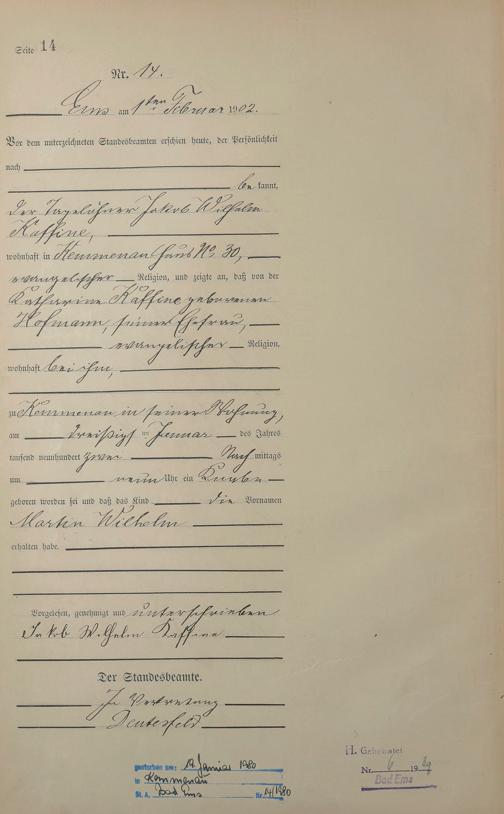 Seite 14
Nr. 14.
Ems am 1ten Februar 1902.
Vor dem unterzeichneten Standesbeamten erschien heute, der Persönlichkeit
nach
be kannt,
der Tagelöhner Jakob Wilhelm
Kaffine,
wohnhaft in Kemmenau Haus No. 30,
evangelischer Religion, und zeigte an, daß von der
Katharine Kaffine geborenen
Hofmann, seiner Ehefrau,
evangelischer Religion,
wohnhaft bei ihm,
zu Kemmenau in seiner Wohnung,
am dreißigst en Januar des Jahres
tausend neunhundert zwei Nach mittags
um neun Uhr ein Knabe
geboren worden sei und daß das Kind die Vornamen
Martin Wilhelm
erhalten habe.
Vorgelesen, genehmigt und unterschrieben
Jakob Wilhelm Kaffine
Der Standesbeamte.
In Vertretung
gestorben am: 19. Januar 1980
in Kemmenau
St. A. Bad Ems Nr. 14/1980
H. Geheiratet
Nr. 6 19
Bad Ems